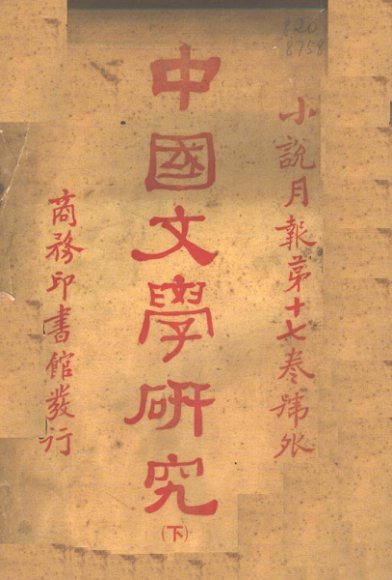 小說月報第十七卷號外
中國文學研究
(下)
商務印書館發行
820
8758